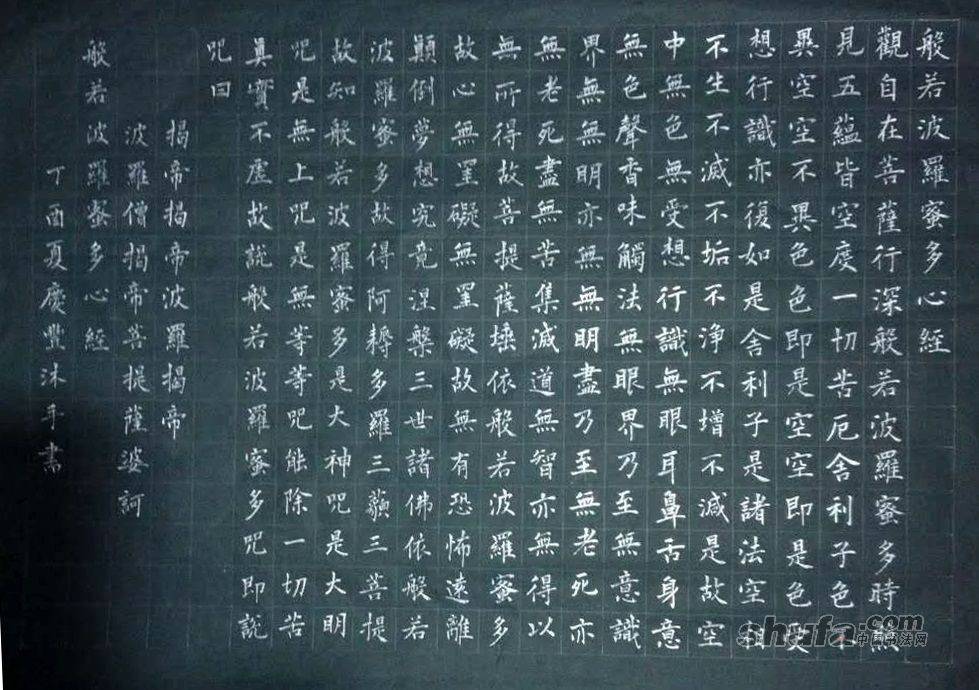 般若波羅蜜多心經
觀自在菩薩行深般若波羅蜜多時照
見五蘊皆空度一切苦厄舍利子色不
異空空不異色色即是空空即是色受
想行識亦復如是舍利子是諸法空相
不生不滅不垢不淨不增不減是故空
中無色無受想行識無眼耳鼻舌身意
無色聲香味觸法無眼界乃至無意識
界無無明亦無無明盡乃至無老死亦
無老死盡無苦集滅道無智亦無得以
無所得故菩提薩埵依般若波羅蜜多
故心無罣礙無罣礙故無有恐怖遠離
顛倒夢想究竟涅槃三世諸佛依般若
波羅蜜多故得阿耨多羅三藐三菩提
故知般若波羅蜜多是大神咒是大明
咒是無上咒是無等等咒能除一切苦
真實不虛故說般若波羅蜜多咒即說
咒曰
揭帝揭帝波羅揭帝
波羅僧揭帝菩提薩婆訶
般若波羅蜜多心經
丁酉夏慶豐沐手書
shufa.com
中国书法网